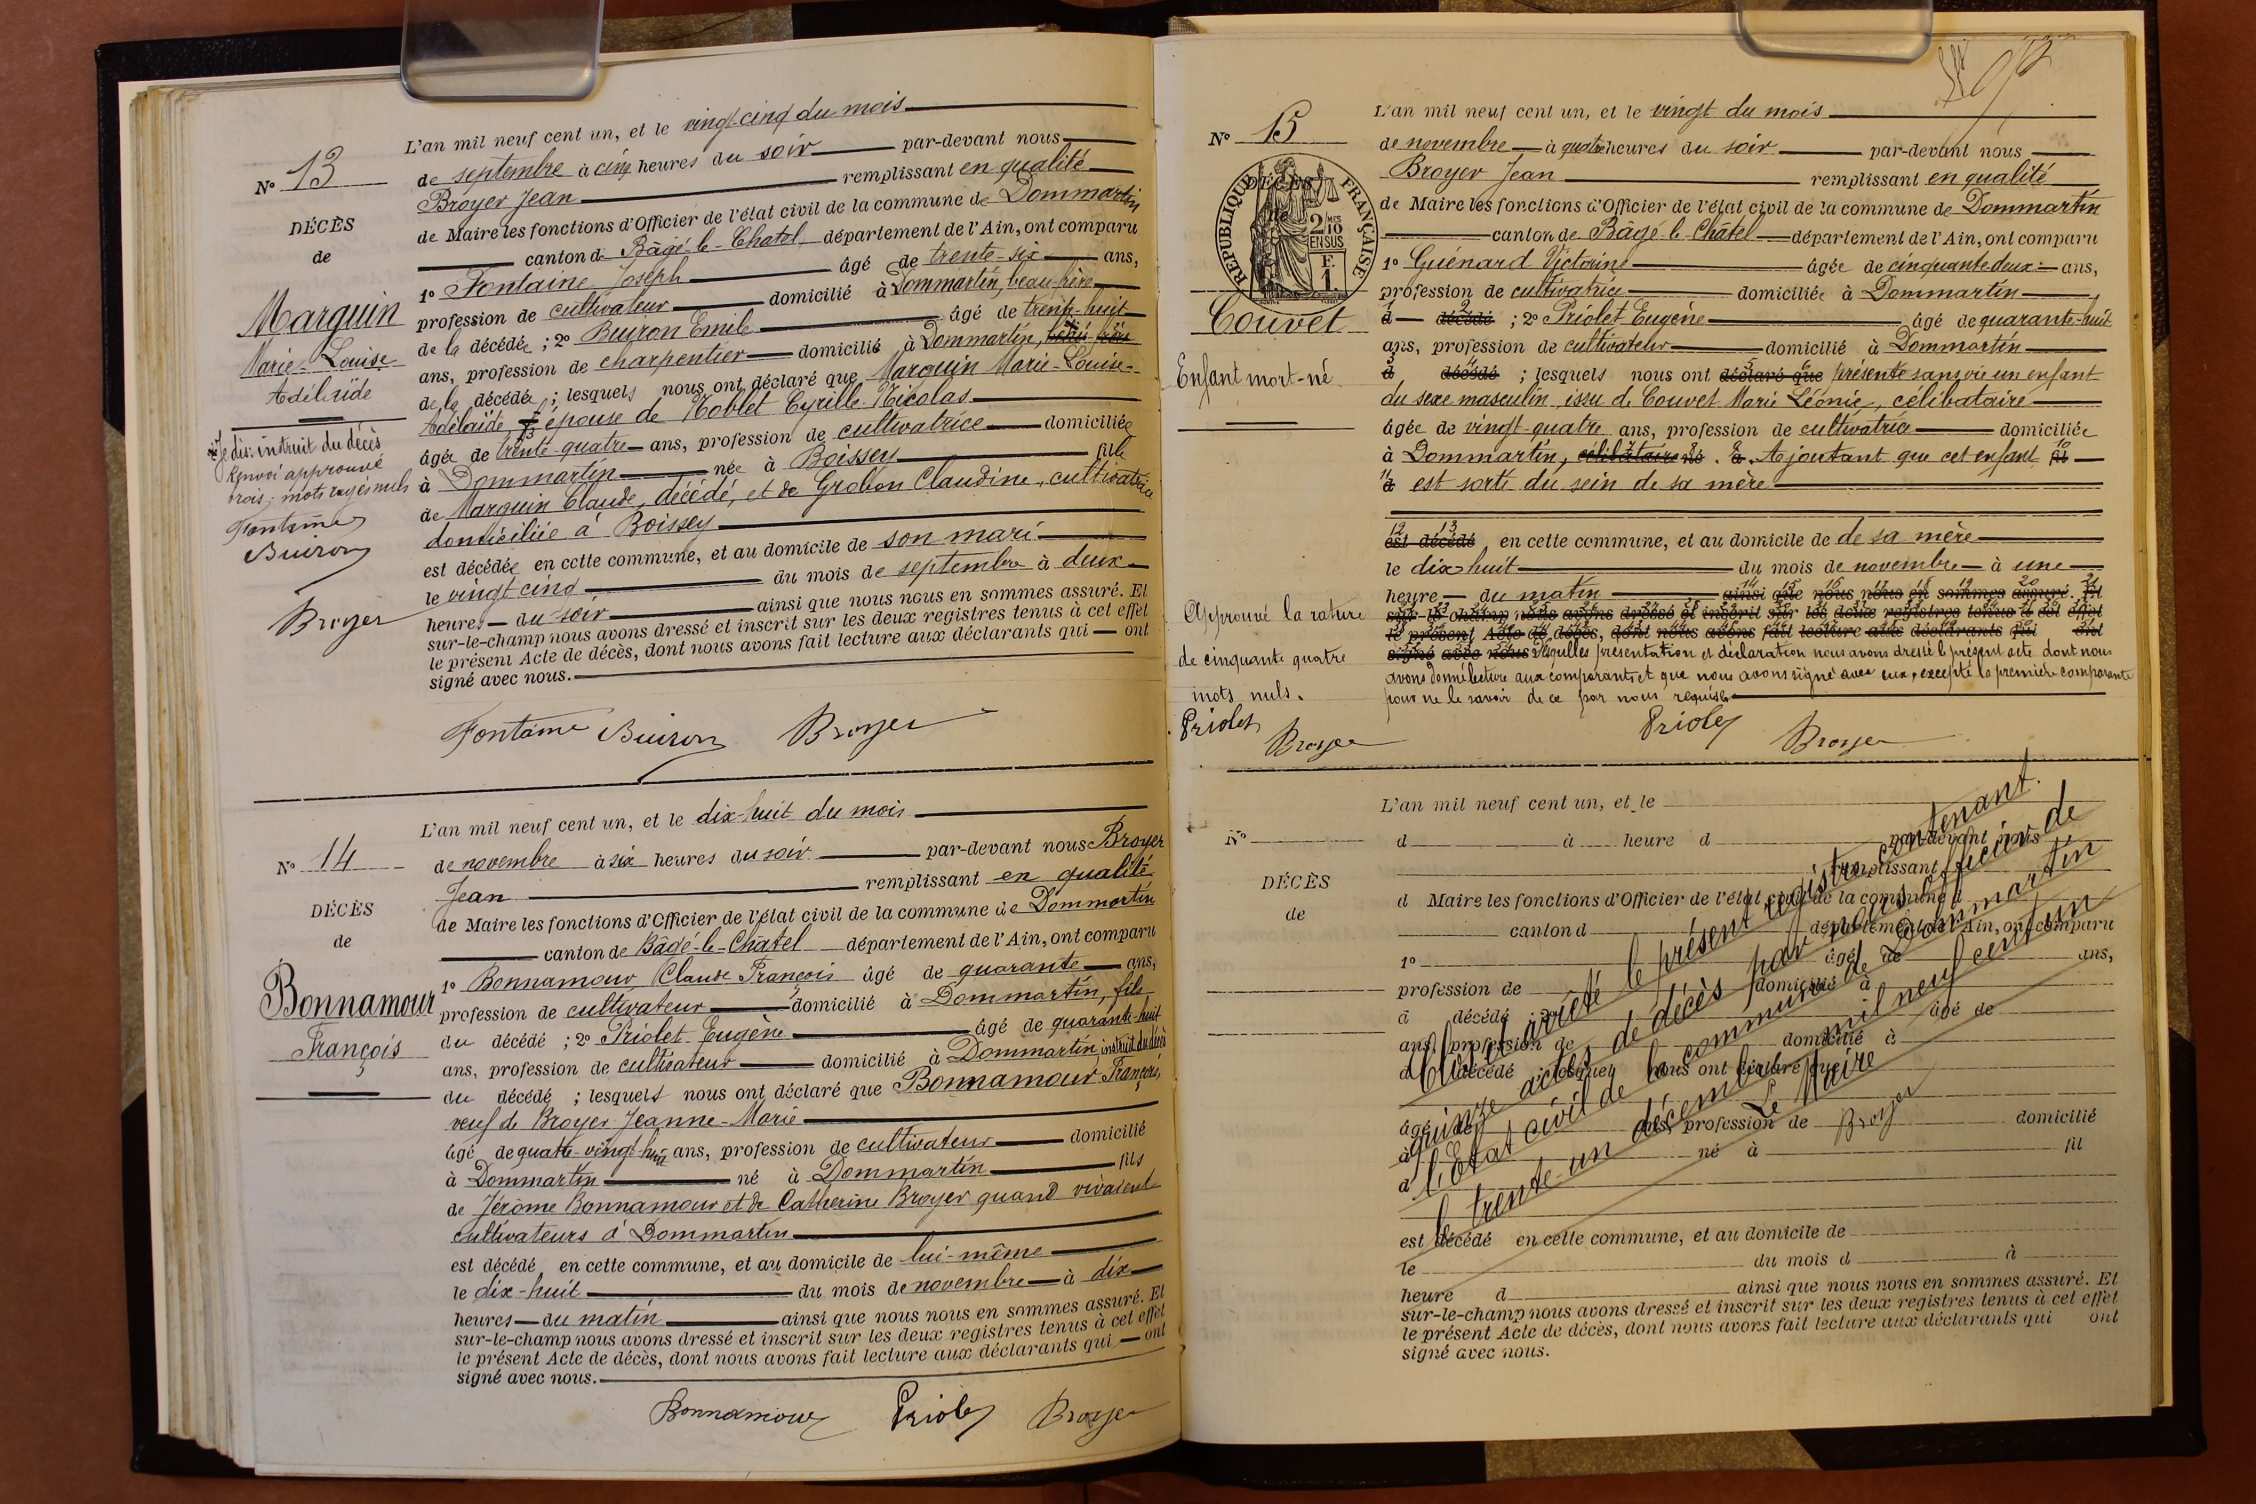 L'an mil neuf cent un, et le vingt-cinq du mois
N° 13
de septembre à cinq heures du soir par-devant nous
Broyer Jean remplissant en qualité
DÉCÈS
de Maire les fonctions d'Officier de l'état civil de la commune de Dommartin
de
canton de Bâgé-le-Chatel département de l'Ain, ont comparu
1° Fontaine Joseph âgé de trente-six ans,
Marguin
profession de cultivateur domicilié à Dommartin, beau-frère
de la décédée ; 2° Buiron Emile âgé de trente-huit
Marie-Louise
ans, profession de charpentier domicilié à Dommartin,
Adélaïde
de la décédée ; lesquels nous ont déclaré que Marguin Marie-Louise-
Adélaïde, épouse de Noblet Cyrille-Nicolas
âgée de trente-quatre ans, profession de cultivatrice domiciliée
à Dommartin née à Boissey fille
de Marguin Claude, décédé, et de Grobon Claudine, cultivatrice
domiciliée à Boissey
est décédée en cette commune, et au domicile de son mari
le vingt cinq du mois de septembre à deux
heures du soir ainsi que nous nous en sommes assuré. Et
sur-le-champ nous avons dressé et inscrit sur les deux registres tenus à cet effet
le présent Acte de décès, dont nous avons fait lecture aux déclarants qui ont
signé avec nous.
Je dis: instruit du décès
Renvoi approuvé
trois; mots rayés nuls
Fontaine
Buiron
Broyer
Fontaine Buiron Broyer
L'an mil neuf cent un, et le dix-huit du mois
N° 14
de novembre à six heures du soir par-devant nous Broyer
Jean remplissant en qualité
DÉCÈS
de Maire les fonctions d'Officier de l'état civil de la commune de Dommartin
de
canton de Bâgé-le-Châtel département de l'Ain, ont comparu
Bonnamour
1° Bonnamour, Claude François âgé de quarante ans,
profession de cultivateur domicilié à Dommartin, fils
François
du décédé ; 2° Priolet Eugène âgé de quarante-huit
ans, profession de cultivateur domicilié à Dommartin, instruit du décès
du décédé ; lesquels nous ont déclaré que Bonnamour François,
veuf de Broyer Jeanne-Marie
âgé de quatre-vingt-huit ans, profession de cultivateur domicilié
à Dommartin né à Dommartin fils
de Jérôme Bonnamour et de Catherine Broyer quand vivaient
cultivateurs à Dommartin
est décédé en cette commune, et au domicile de lui-même
le dix-huit du mois de novembre à dix
heures du matin ainsi que nous nous en sommes assuré. Et
sur-le-champ nous avons dressé et inscrit sur les deux registres tenus à cet effet
le présent Acte de décès, dont nous avons fait lecture aux déclarants qui ont
signé avec nous.
Bonnamour Priolet Broyer
L'an mil neuf cent un, et le vingt du mois
N° 15
de novembre à quatre heures du soir par-devant nous
Broyer Jean remplissant en qualité
DÉCÈS
RÉPUBLIQUE FRANÇAISE
2 MES
10
EN SUS
F.
1.
de Maire les fonctions d'Officier de l'état civil de la commune de Dommartin
canton de Bâgé-le-Châtel département de l'Ain, ont comparu
1° Guénard Victorine âgée de cinquante deux ans,
profession de cultivatrice domiciliée à Dommartin
d décédé ; 2° Priolet Eugène âgé de quarante-huit
Couvet
ans, profession de cultivateur domicilié à Dommartin
Enfant mort-né
d décédé ; lesquels nous ont déclaré que présenté sans vie un enfant
du sexe masculin, issu de Couvet Marie Léonie, célibataire
âgée de vingt-quatre ans, profession de cultivatrice domiciliée
à Dommartin, célibataire né à Ajoutant que cet enfant fil
d est sorti du sein de sa mère
est décédé en cette commune, et au domicile de de sa mère
le dix huit du mois de novembre à une
heure du matin ainsi que nous nous en sommes assuré. Et
sur-le-champ nous avons dressé et inscrit sur les deux registres tenus à cet effet
le présent Acte de décès, dont nous avons fait lecture aux déclarants qui ont
signé avec nous Desquelles présentation et déclaration nous avons dressé le présent acte dont nous
avons donné lecture aux comparants et que nous avons signé avec eux, excepté la première comparante
pour ne le savoir de ce par nous requise
Approuvé la rature
de cinquante quatre
mots nuls.
Priolet
Broyer
Priolet Broyer
L'an mil neuf cent un, et le
N°
d à heure d par-devant nous
remplissant
DÉCÈS
d Maire les fonctions d'Officier de l'état civil de la commune d
de
canton d département de l'Ain, ont comparu
1° âgé de ans,
profession de domicilié à
d décédé ; 2° âgé de
ans, profession de domicilié à
d décédé ; lesquels nous ont déclaré que
âgé de ans, profession de domicilié
à né à fil
d
est décédé en cette commune, et au domicile de
le du mois d à
heure d ainsi que nous nous en sommes assuré. Et
sur-le-champ nous avons dressé et inscrit sur les deux registres tenus à cet effet
le présent Acte de décès, dont nous avons fait lecture aux déclarants qui ont
signé avec nous.
Clos et arrêté le présent registre contenant
quinze actes de décès par nous officier de
l'Etat civil de la commune de Dommartin
le trente-un décembre mil neuf cent un
Le Maire
Broyer